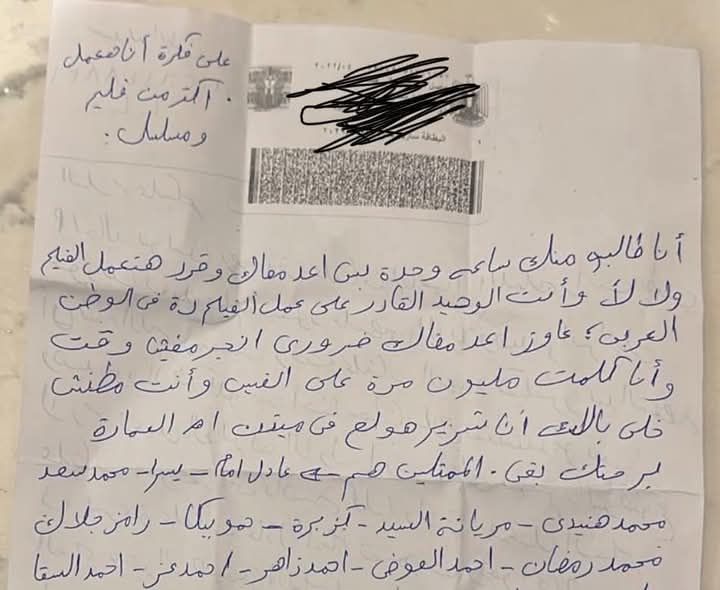 على فكرة أنا هعمل
أكتر من فيلم
ومسلسل.
٢٠٢٢/٠٤
البطاقة سار
أنا طالب منك ساعه وحدة بس اعد معاك وقرر هتعمل الفيلم
ولا لأ وأنت الوحيد القادر على عمل الفيلم دة فى الوطن
العربى؛ عاوز اعد معاك ضرورى انجر مفيش وقت
وأنا كلمت مليون مرة على الفيس وأنت مطنش
خلى بالك أنا شرير هولع فى ميتين ام العمارة
لبرحتك بقى. الممثلين هم عادل امام - يسرا - محمد سعد
محمد هنيدى - مريانة السيد - كزبرة - حمو بيكا - رامز جلال
محمد رمضان - احمد العوضى - احمد زاهر - احمد عز - احمد السقا